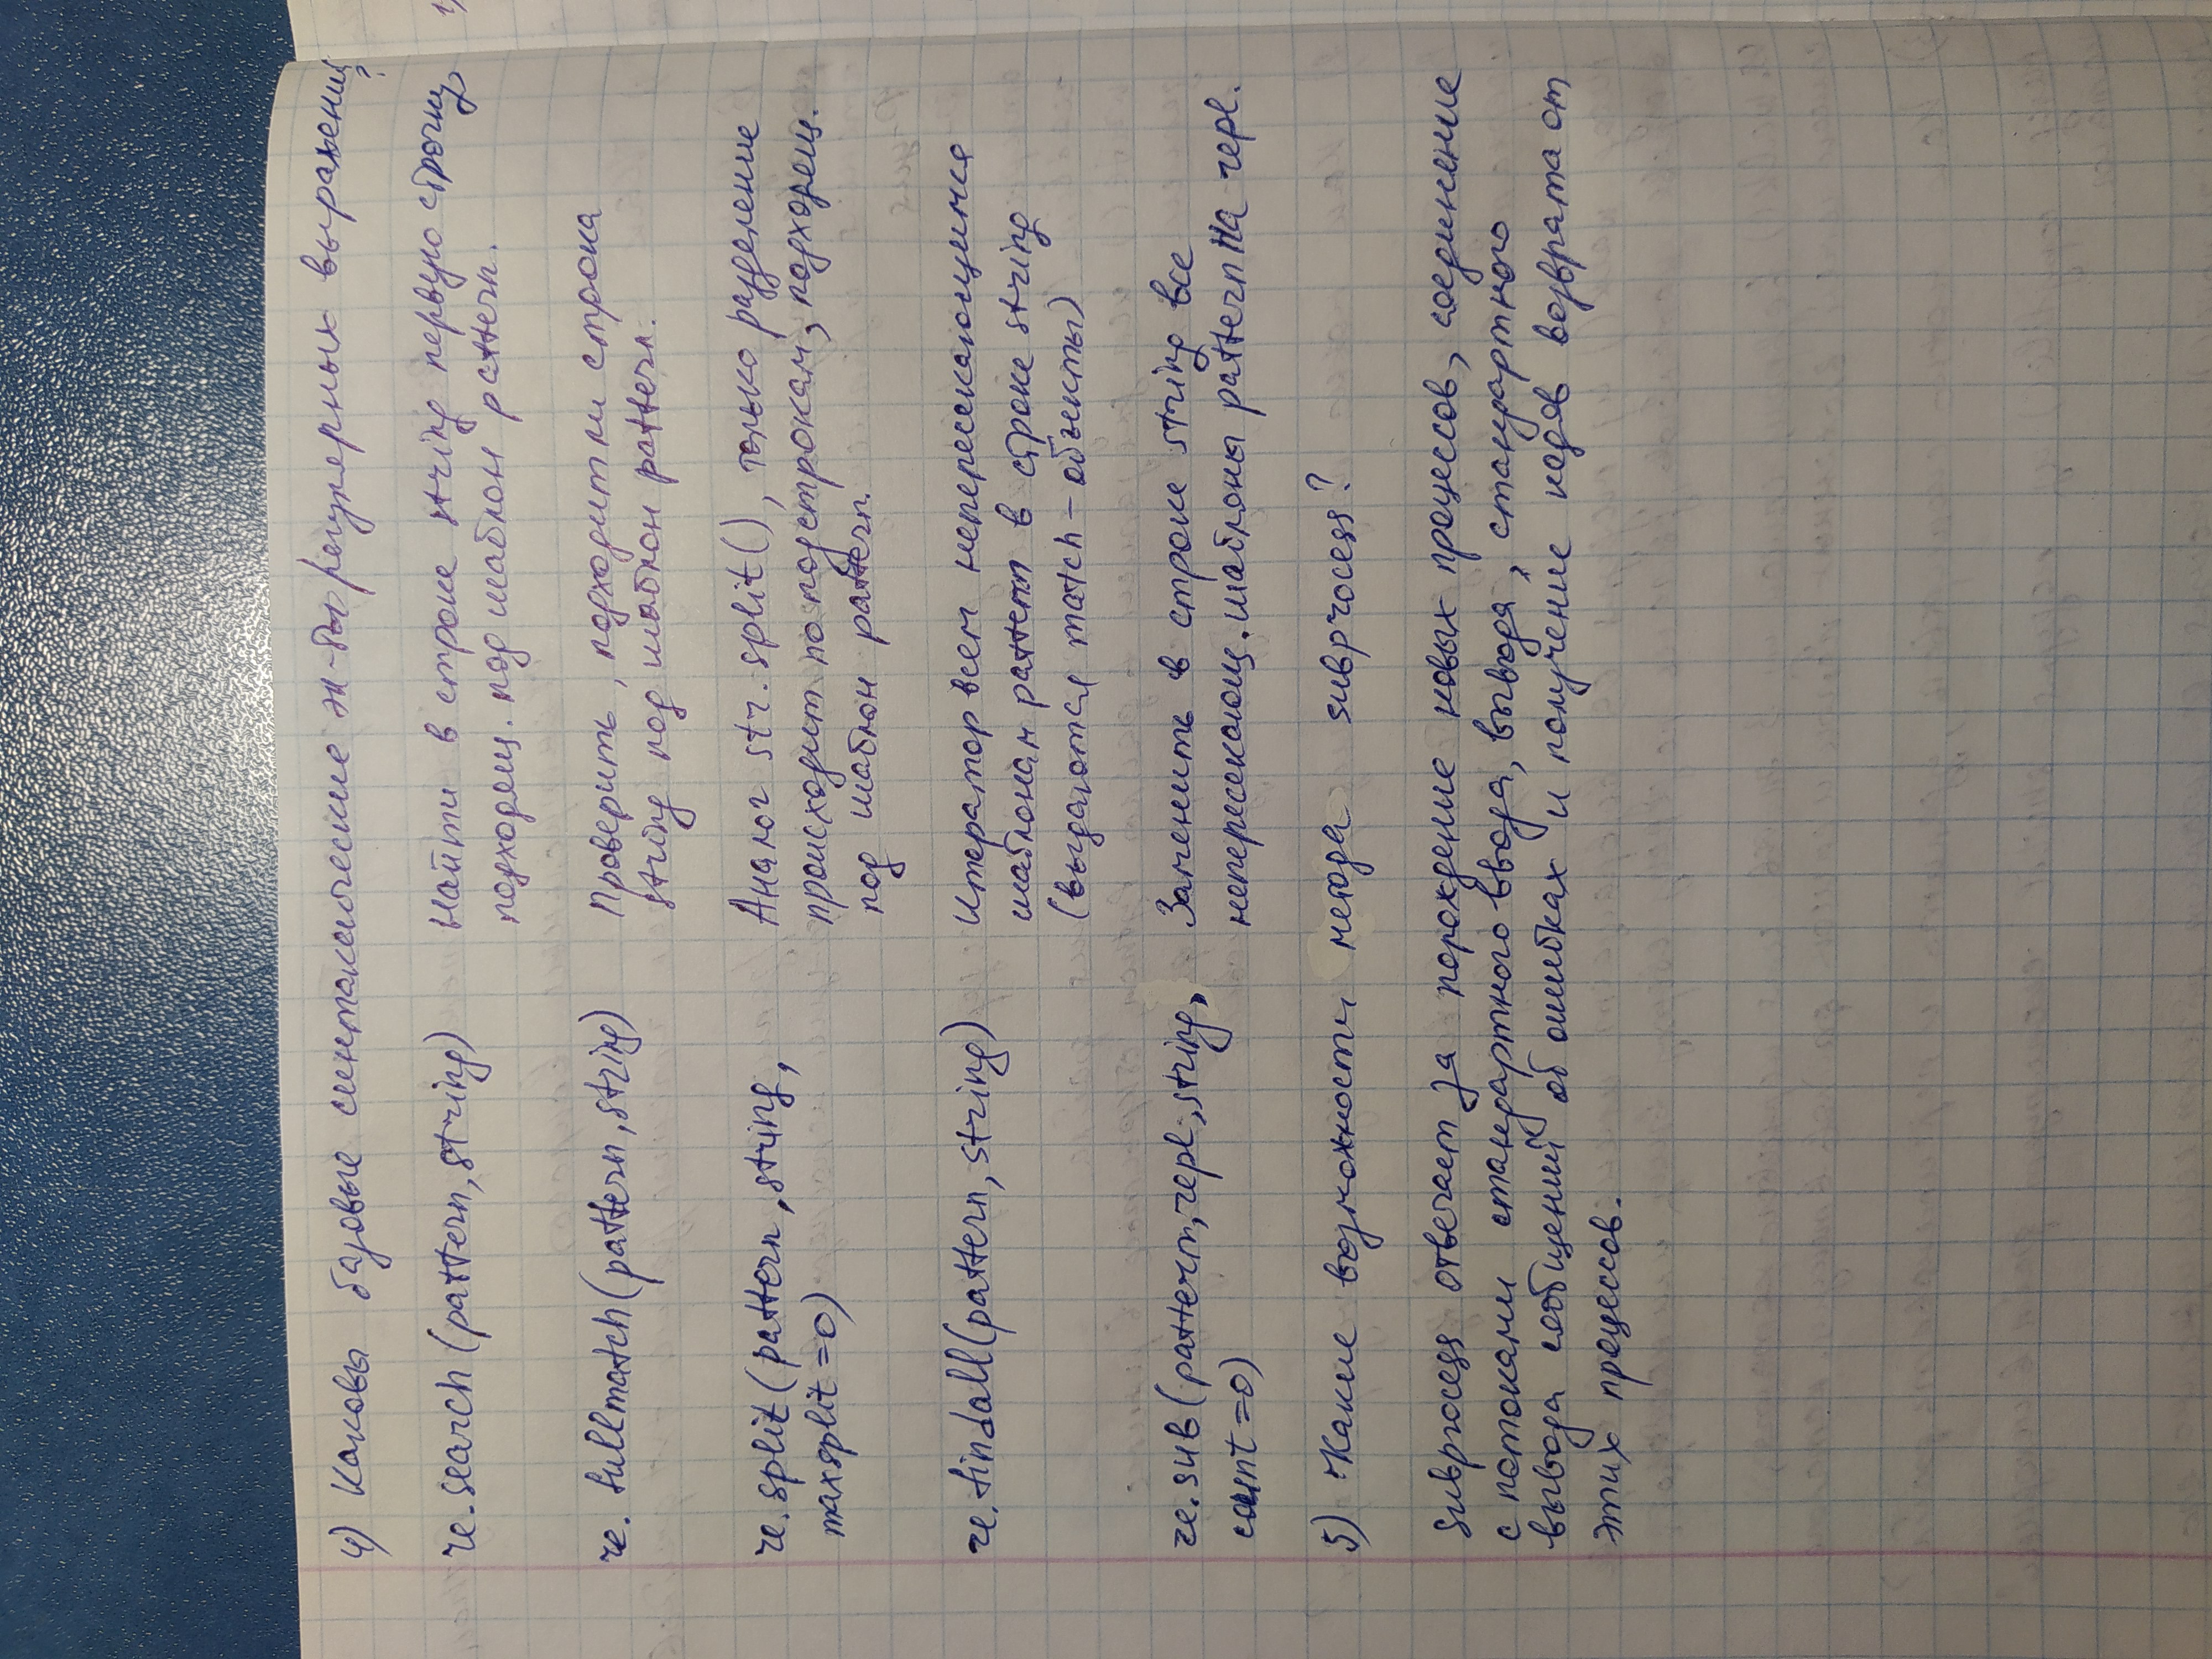 4) Каковы базовые синтаксические эл-ты регулярных выражений?
re.search (pattern, string) Найти в строке string первую строчку,
подходящ. под шаблон pattern.
re. fullmatch (pattern, string) Проверить, подходит ли строка
string под шаблон pattern.
re.split (pattern, string, Аналог str.split(), только разделение
maxsplit = 0) происходит по подстрокам, подходящ.
под шаблон pattern.
re.findall (pattern, string) Итератор всем непересекающимся
шаблонам pattern в строке string
(выдаются match - объекты)
re.sub (pattern, repl, string, Заменить в строке string все
count = 0) непересекающ. шаблоны pattern на repl.
5) Какие возможности метода subprocess?
Subprocess отвечает за порождение новых процессов, соединение
с потоками стандартного ввода, вывода, стандартного
вывода сообщений об ошибках и получение кодов возврата от
этих процессов.